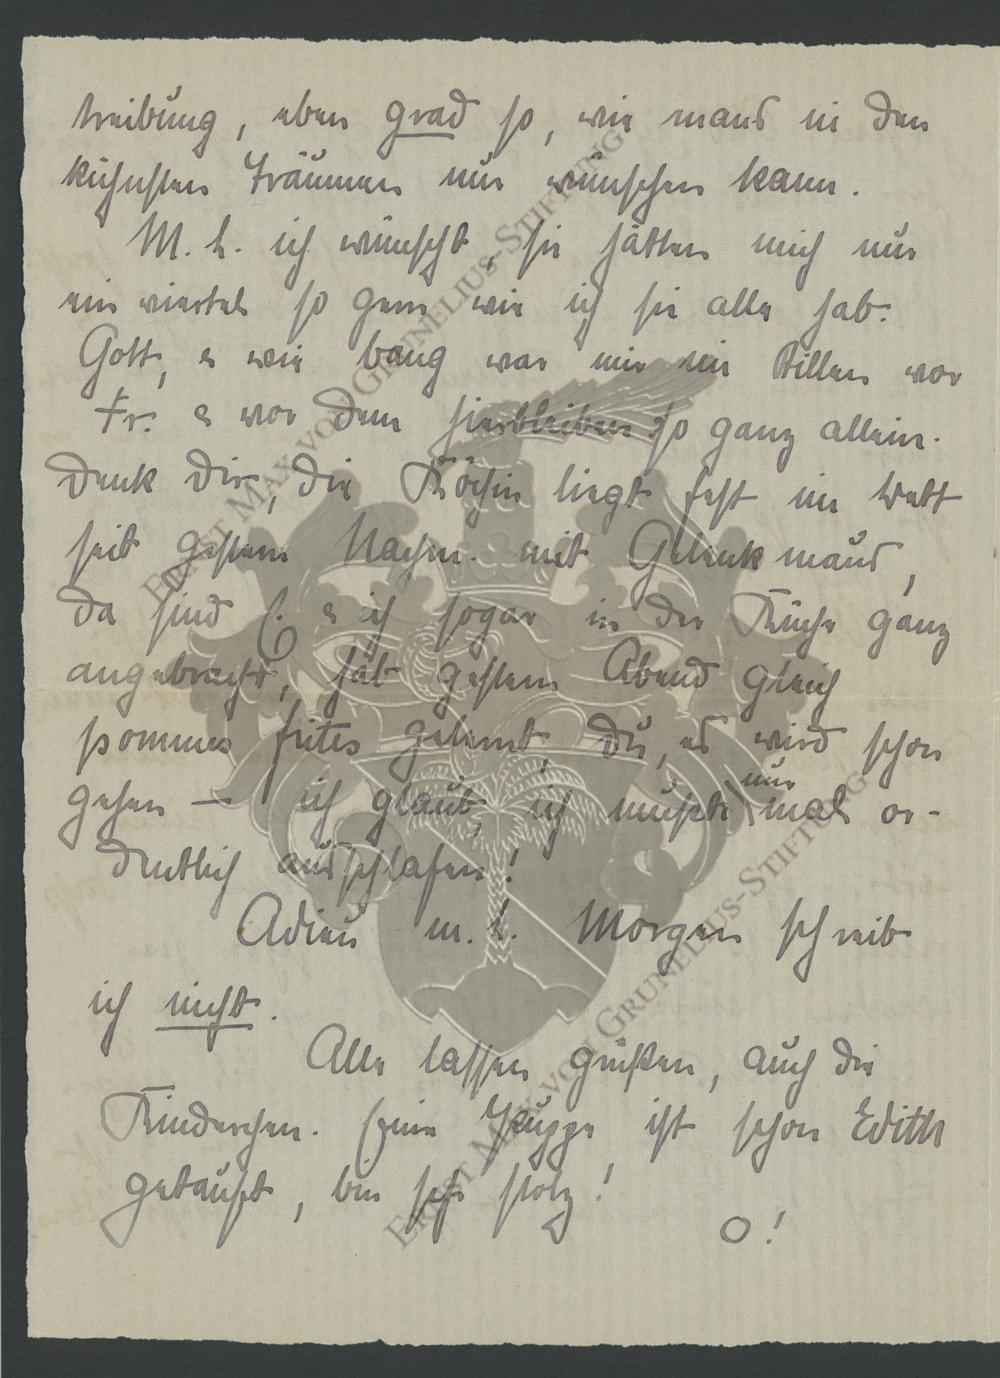 treibung, eben grad so, wie mans in den
kühnsten Träumen nur wünschen kann.
M. L. ich wünscht, sie hätten mich nur
ein viertel so gern wie ich sie alle hab.
Gott, & wie bang war mir im Stillen vor
Fr. & vor dem hierbleiben so ganz allein.
Denk Dir, die Köchin liegt fest im Bett
seit gestern Nachm. mit
da sind & ich sogar in der Küche ganz
angebracht, hab gestern Abend gleich
pommes frites gelernt, Du, es wird schon
gehen — ich glaub, ich müsste nur mal or-
dentlich ausschlafen!
Adieu m. L. Morgen schreib
ich nicht.
Alle lassen grüßen, auch die
Kinderchen. Eine Puppe ist schon Edith
getauft, bin sehr stolz!
O!
ERNST MAX VON GRUNELIUS-STIFTUNG
ERNST MAX VON GRUNELIUS-STIFTUNG